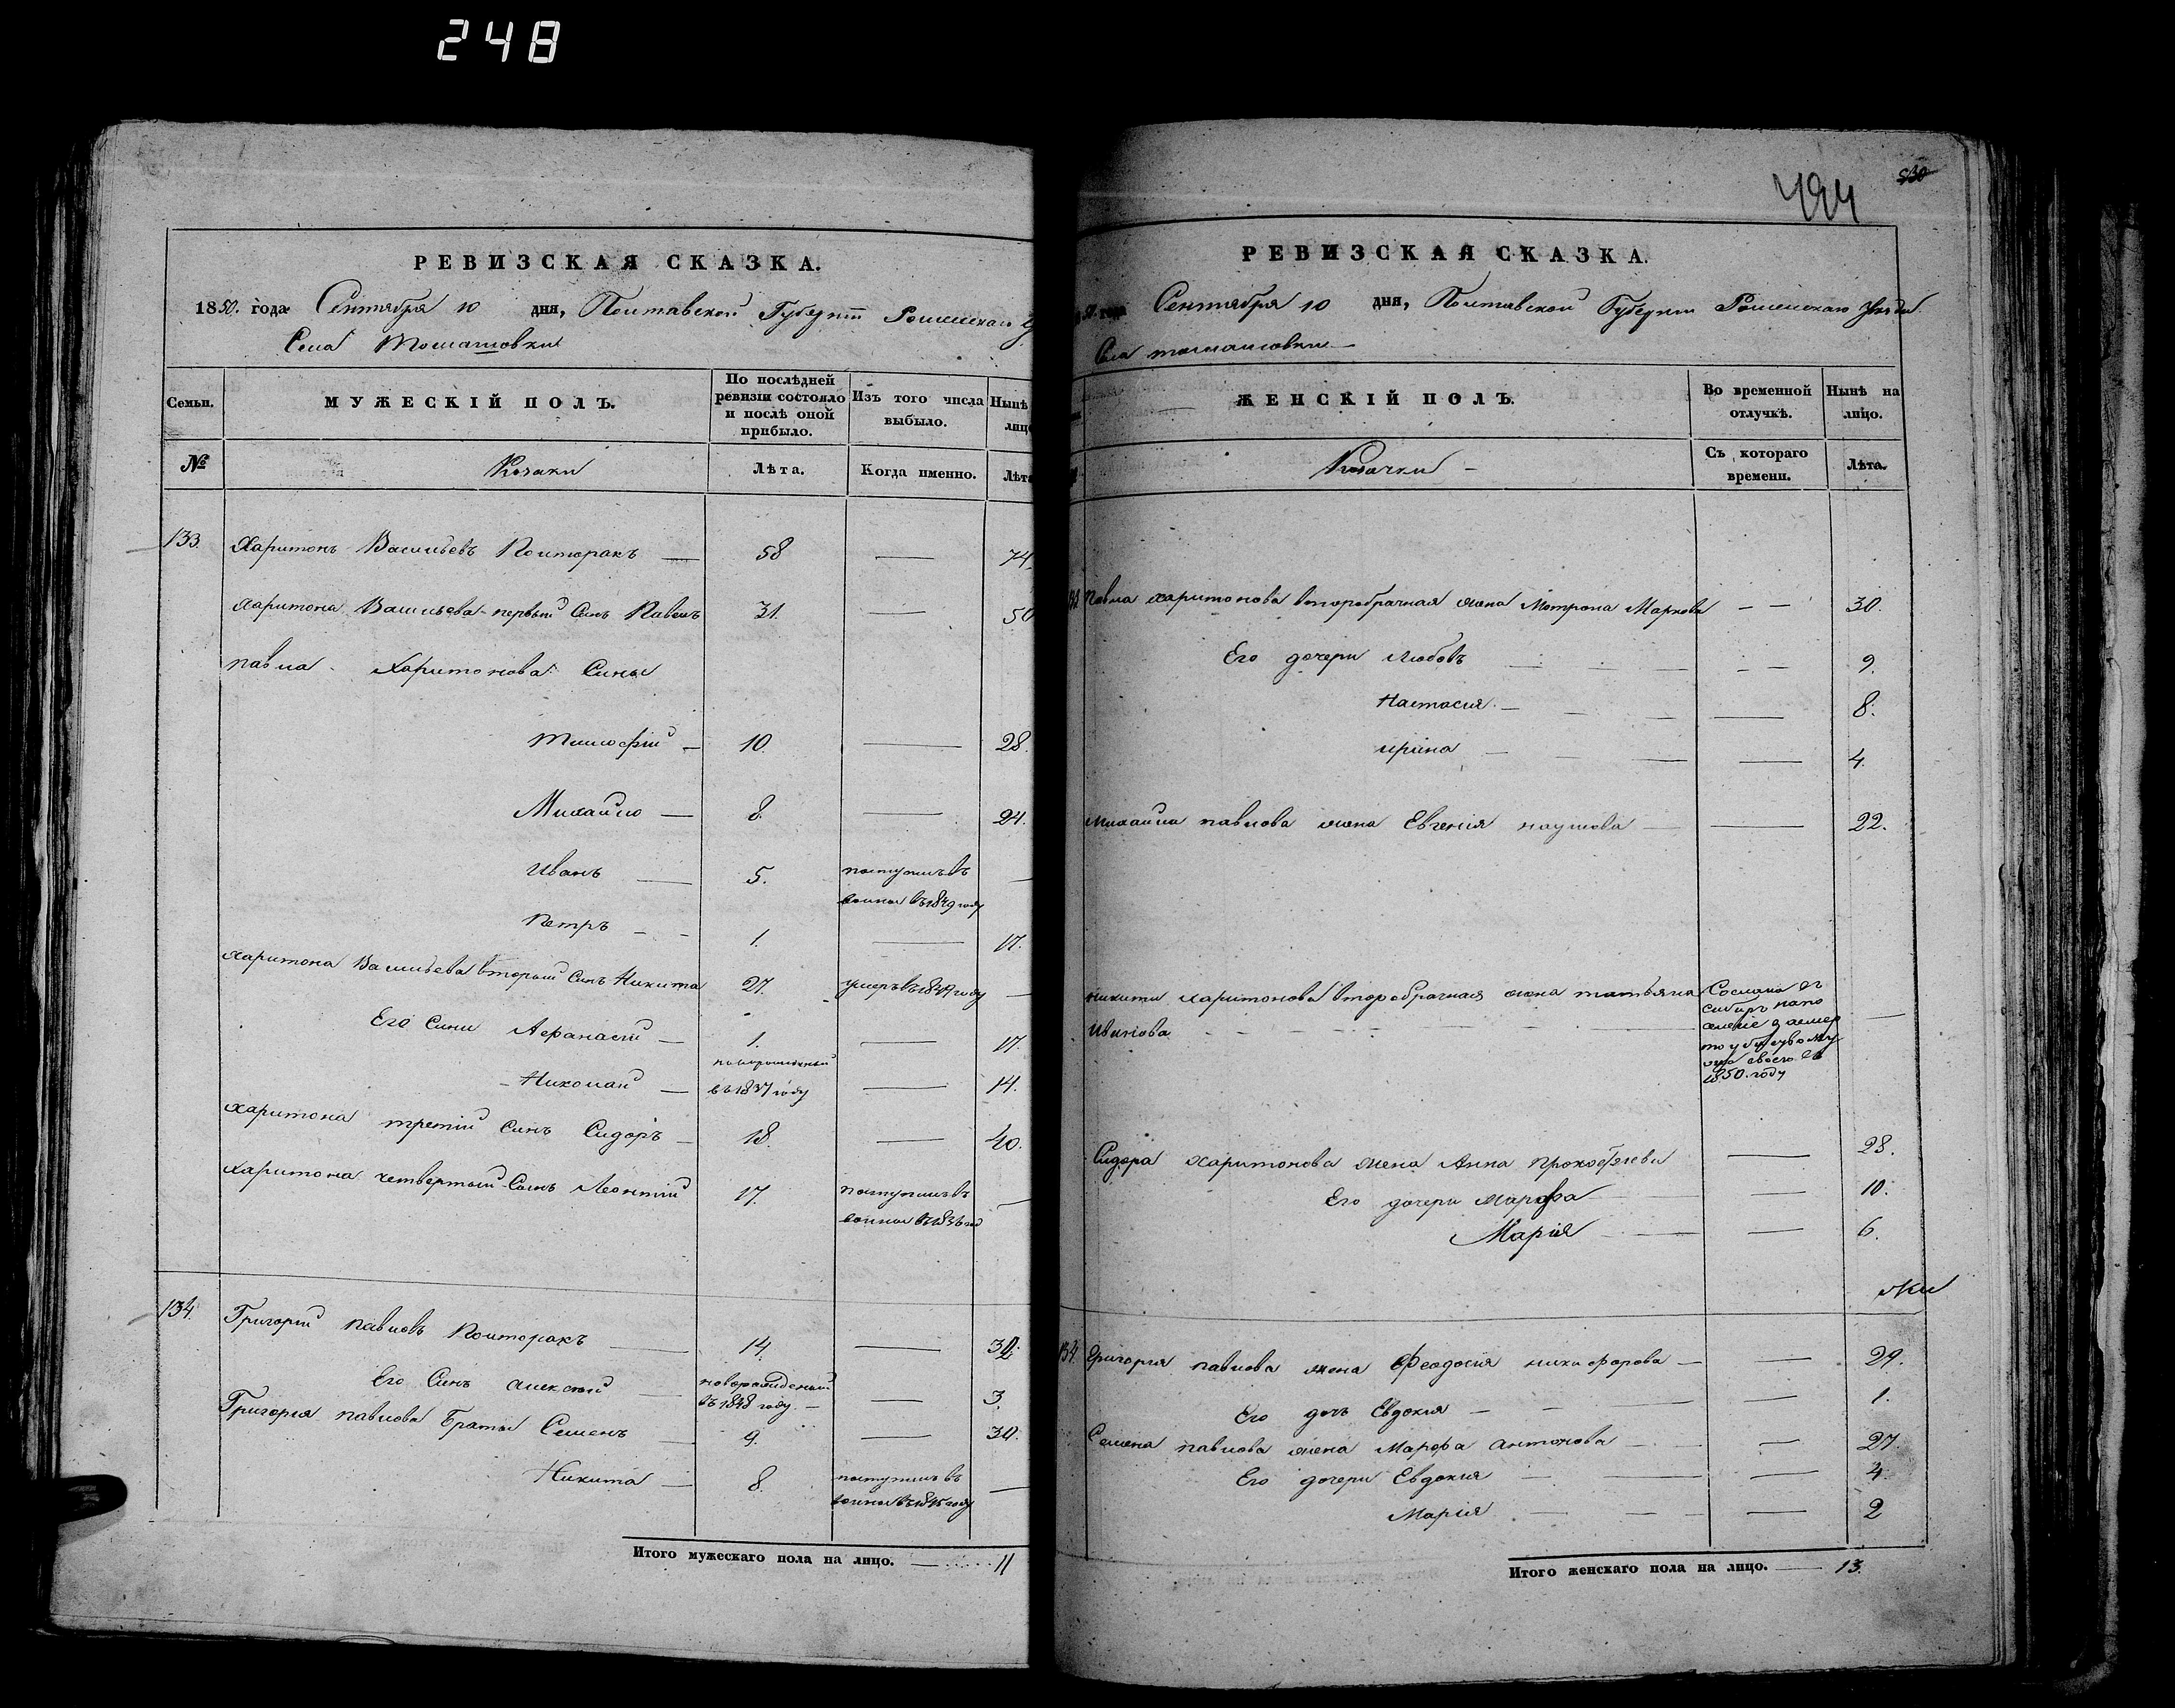 248
РЕВИЗСКАЯ СКАЗКА.
1850. года Сентября 10 дня, Полтавской Губернии Роменскаго
Села Томашовки
Семьи.
МУЖЕСКІЙ ПОЛЪ.
По послѣдней ревизіи состояло и послѣ оной прибыло.
Изъ того числа выбыло.
Нынѣ
лицо
№
Козаки
Лѣта.
Когда именно.
Лѣта
133. Харитонъ Васильевъ Полторакъ — 58 — 74.
Харитона Васильева первый Синъ Павелъ 31. — 50
павла Харитонова Сины
Тимофій — 10. — 28.
Михайло — 8. — 24.
Иванъ — 5. поступилъ въ воины въ 1849 году —
Петръ — 1. — 17.
Харитона Васильева вторый Синъ Никита 27. умеръ въ 1849 году —
Его Сини Афанасій — 1. — 17.
Николай — новорожденный въ 1837 году — 14.
Харитона третій Синъ Сидоръ — 18. — 40.
Харитона четвертый Синъ Леонтій 17. поступилъ въ воины въ 1836 год —
134. Григорій павловъ Полторакъ — 14. — 30.
Его Синъ алексѣй — новорожденный въ 1848 году. — 3.
Григорія павлова Браты Семенъ — 9. — 30.
Никита — 8. поступилъ въ воины въ 1845 году —
Итого мужескаго пола на лицо. — 11
530
494
РЕВИЗСКАЯ СКАЗКА.
50. года Сентября 10 дня, Полтавской Губерніи Роменскаго уѣзда.
Села томашовки —
ЖЕНСКІЙ ПОЛЪ.
Во временной отлучкѣ.
Нынѣ на лицо.
Козачки —
Съ котораго времени.
Лѣта.
Павла харитонова второбрачная жена Мотрона Маркова — — 30.
Его дочери Любовъ — — 9.
Настасия — — 8.
ирина — — 4.
Михайла павлова жена Евгенія наумова — — 22.
Никити харитонова второбрачная жена татьяна
Иванова
Сослана въ
сибирь
1850. году
—
Сидора харитонова жена Анна прокофіева — 28.
Его дочери марфа — 10.
Марія — — 6.
134. Григорія павлова жена Феодосія никифорова — — 29.
Его дочь Евдокия — — 1.
Семена павлова жена Марфа антонова — — 27.
Его дочери Евдокия — — 4.
Марія — — 2
Итого женскаго пола на лицо. — 13.